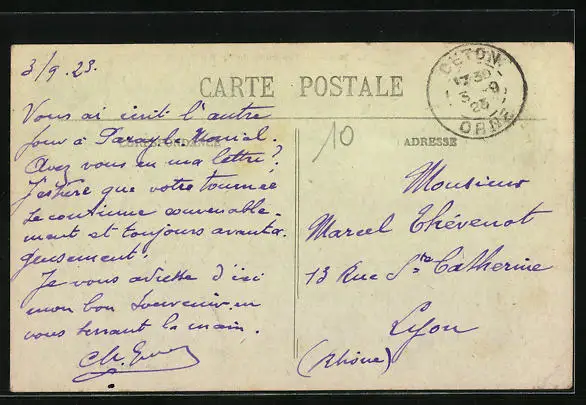 3/9.23.
CARTE POSTALE
CETON
17 30
3 - 9
23
ORNE
Vous ai écrit l'autre
jour à Paray le Monial.
CORRESPONDANCE
Avez vous eu ma lettre?
J'espère que votre tournée
se continue convenable-
ment et toujours avanta-
geusement.
Je vous adresse d'ici
mon bon souvenir en
vous serrant la main.
10
ADRESSE
Monsieur
Marcel Thévenot
13 Rue Ste Catherine
Lyon
(Rhône)